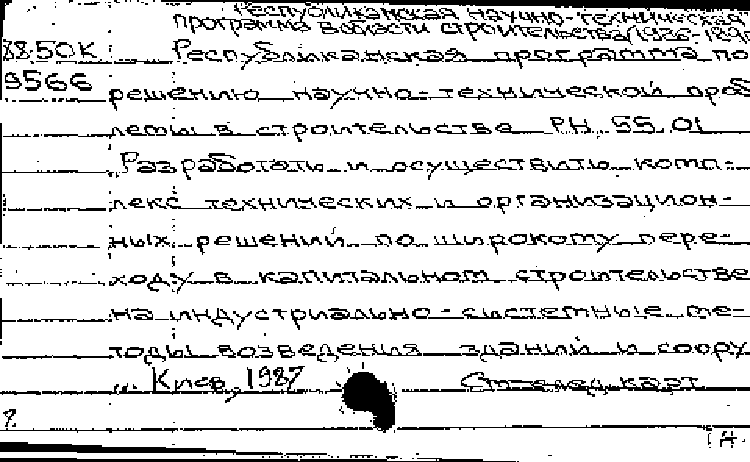 Республиканская научно-техническая
программа в области строительства (1986-1990
88.50К Республиканская программа по
9566
решению научно-технической проб
лемы в строительстве РН 55.01
Разработать и осуществить комп-
лекс технических и организацион-
ных решений по широкому пере-
ходу в капитальном строительстве
на индустриально-системные ме-
тоды возведения зданий и соору
... Киев, 1987 См. след. карт